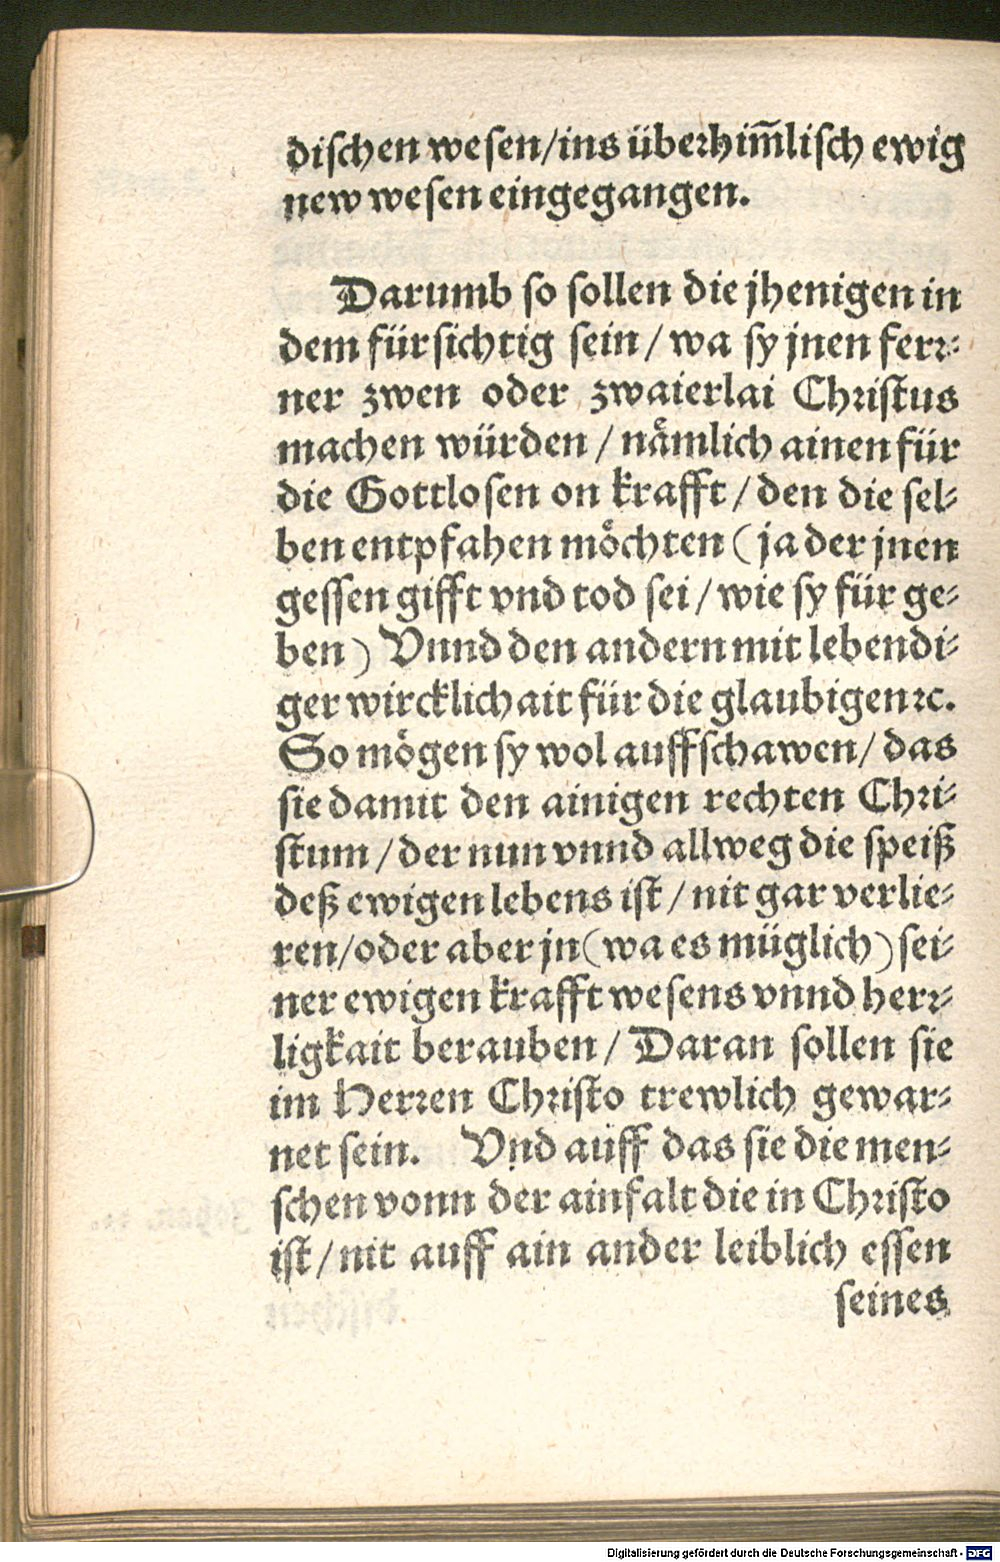 diſchen weſen/ins überhim̃liſch ewig
new weſen eingegangen.
Darumb ſo ſollen die jhenigen in
dem fürſichtig ſein / wa ſy jnen ferꝛ⸗
ner zwen oder zwaierlai Chꝛiſtus
machen würden / nåmlich ainen für
die Gottloſen on krafft / den die ſel⸗
ben entpfahen möchten ( ja der jnen
geſſen gifft vnd tod ſei / wie ſy für ge⸗
ben ) Vnnd den andern mit lebendi⸗
ger wircklichait für die glaubigen ꝛc.
So mögen ſy wol auffſchawen/ das
ſie damit den ainigen rechten Chꝛi⸗
ſtum / der nun vnnd allweg die ſpeiß
deß ewigen lebens iſt / nit gar verlie⸗
ren/oder aber jn ( wa es müglich ) ſei⸗
ner ewigen krafft weſens vnnd herꝛ⸗
ligkait berauben / Daran ſollen ſie
im Herꝛen Chꝛiſto trewlich gewar⸗
net ſein. Vnd auff das ſie die men⸗
ſchen vonn der ainfalt die in Chꝛiſto
iſt / nit auff ain ander leiblich eſſen
ſeines
Digitalisierung gefördert durch die Deutsche Forschungsgemeinschaft - DFG